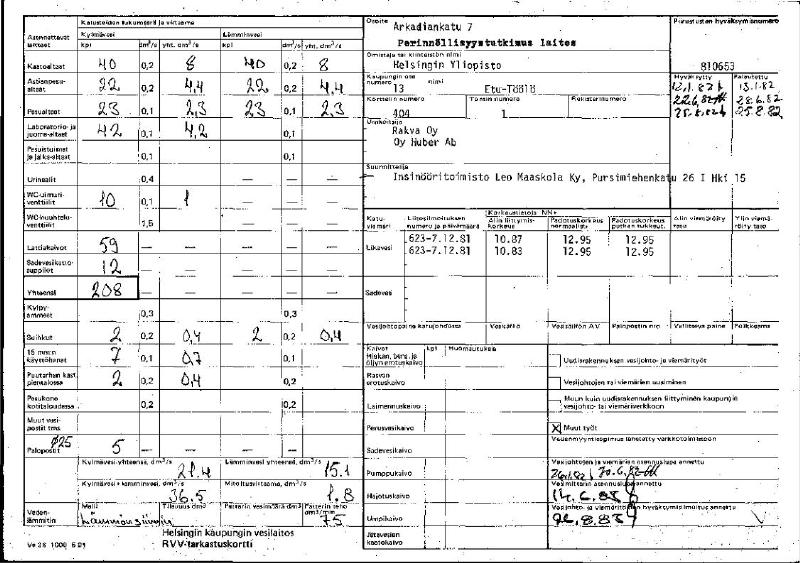 Kalusteiden lukumäärä ja virtaama
Asennettavat laitteet
Kylmävesi
Lämminvesi
kpl dm³/s yht. dm³/s kpl dm³/s yht. dm³/s
Kaatoaltaat 40 0,2 8 40 0,2 8
Astianpesualtaat 22 0,2 4,4 22 0,2 4,4
Pesualtaat 23 0,1 2,3 23 0,1 2,3
Laboratorio- ja juoma-altaat 42 0,1 4,2
Pesuistuimet ja jalka-altaat 0,1 0,1
Urinaalit 0,4 — — — —
WC-uimuriventtiilit 10 0,1 1 — — —
WC-huuhteluventtiilit 1,5 — — — —
Lattiakaivot 59 — — — — —
Sadevesikattosuppilot 12 — — — — —
Yhteensä 208 — — — — —
Kylpyammeet 0,3 0,3
Suihkut 2 0,2 0,4 2 0,2 0,4
15 mm:n käyttöhanat 7 0,1 0,7 0,1
Puutarhan kast. pientalossa 2 0,2 0,4 0,2
Pesukone kotitaloudessa 0,2 0,2
Muut vesipostit
Palopostit ø25 5 — — — — —
Kylmävesi yhteensä, dm³/s 21.4
Lämminvesi yhteensä, dm³/s 15.1
Kylmävesi + lämminvesi, dm³/s 36.5
Mitoitusvirtaama, dm³/s 1.8
Vedenlämmitin
Malli
Tilavuus dm³
Patterin vesimäärä dm³
Patterin teho
75
Helsingin kaupungin vesilaitos
RVV-tarkastuskortti
Ve 28 1000 5.81
Osoite
Arkadiankatu 7
Perinnöllisyystutkimus laitos
Piirustusten hyväksymisnumero
810653
Omistaja tai kiinteistön nimi
Helsingin Yliopisto
Kaupungin osa numero
13
nimi
Etu-Töölö
Hyväksytty Palautettu
12.1.82 13.1.82
22.6.82 28.6.82
25.8.82 25.8.82
Korttelin numero
404
Tontin numero
1
Rekisterinumero
Urakoitsija
Rakva Oy
Oy Huber Ab
Suunnittelija
Insinööritoimisto Leo Maaskola Ky, Pursimiehenkatu 26 I Hki 15
Katuviemäri
Liitosilmoituksen numero ja päivämäärä
Korkeustietoja NN+
Alin liittymiskorkeus
Padotuskorkeus normaalist.
Padotuskorkeus putken tukkeut.
Alin viemäröity taso
Ylin viemäröity taso
Likavesi
623-7.12.81 10.87 12.95 12.95
623-7.12.81 10.83 12.95 12.95
Sadevesi
Vesijohtopaine katujohdossa
Vesisäiliö
Vesisäiliön AV
Palopostin nro
Vallitseva paine
Poikkeama
Kaivot kpl Huomautuksia
Hiekan, bens. ja öljynerotuskaivo
Rasvanerotuskaivo
Laimennuskaivo
Perusvesikaivo
Sadevesikaivo
Pumppukaivo
Hajotuskaivo
Umpikaivo
Jätevesien kaatokaivo
Uudisrakennuksen vesijohto- ja viemärityöt
Vesijohtojen tai viemärien uusiminen
Muun kuin uudisrakennuksen liittyminen kaupungin vesijohto- tai viemäriverkkoon
X Muut työt
Vedenmyyntisopimus lähetetty verkkotoimistoon
Vesijohtojen ja viemärien asennuslupa annettu
26.1.82 30.6.82
Vesimittarin asennuslupa annettu
14.6.88
Vesijohto- ja viemäritöiden hyväksymisilmoitus annettu
26.8.88